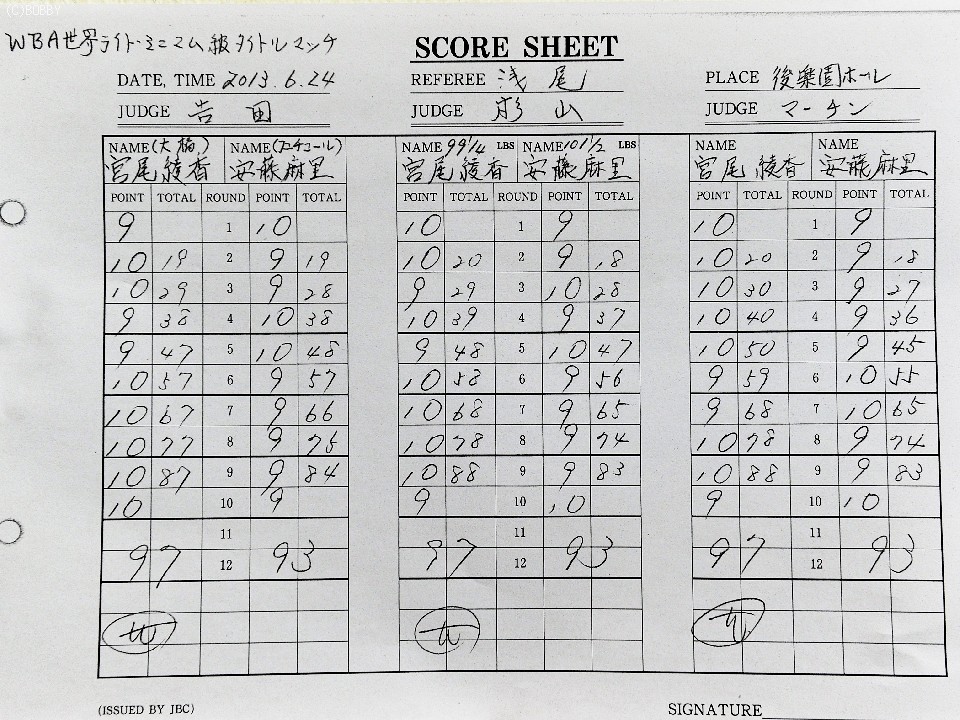 (C)BOBBY
WBA世界ライト・ミニマム級タイトルマッチ
SCORE SHEET
DATE, TIME 2013.6.24 REFEREE 浅尾 PLACE 後楽園ホール
JUDGE 吉田 JUDGE 杉山 JUDGE マーチン
NAME(大橋) NAME(フュチュール) NAME 99 1/4 LBS NAME 101 1/2 LBS NAME NAME
宮尾綾香 安藤麻里 宮尾綾香 安藤麻里 宮尾綾香 安藤麻里
POINT TOTAL ROUND POINT TOTAL POINT TOTAL ROUND POINT TOTAL POINT TOTAL ROUND POINT TOTAL
9 1 10 10 1 9 10 1 9
10 19 2 9 19 10 20 2 9 18 10 20 2 9 18
10 29 3 9 28 9 29 3 10 28 10 30 3 9 27
9 38 4 10 38 10 39 4 9 37 10 40 4 9 36
9 47 5 10 48 9 48 5 10 47 10 50 5 9 45
10 57 6 9 57 10 58 6 9 56 9 59 6 10 55
10 67 7 9 66 10 68 7 9 65 9 68 7 10 65
10 77 8 9 75 10 78 8 9 74 10 78 8 9 74
10 87 9 9 84 10 88 9 9 83 10 88 9 9 83
10 10 9 9 10 10 9 10 10
11 11 11
97 12 93 97 12 93 97 12 93
(ISSUED BY JBC) SIGNATURE